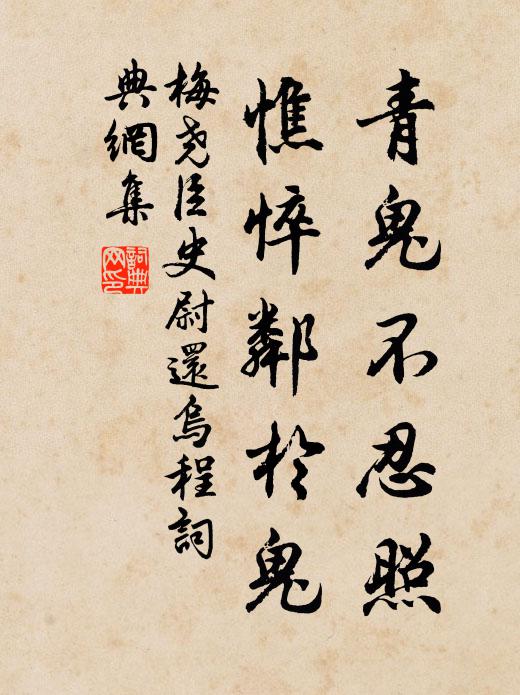 青鬼不忍照
憔悴鄰於鬼
梅尧臣史尉還烏程詞
典網集
詞典網印